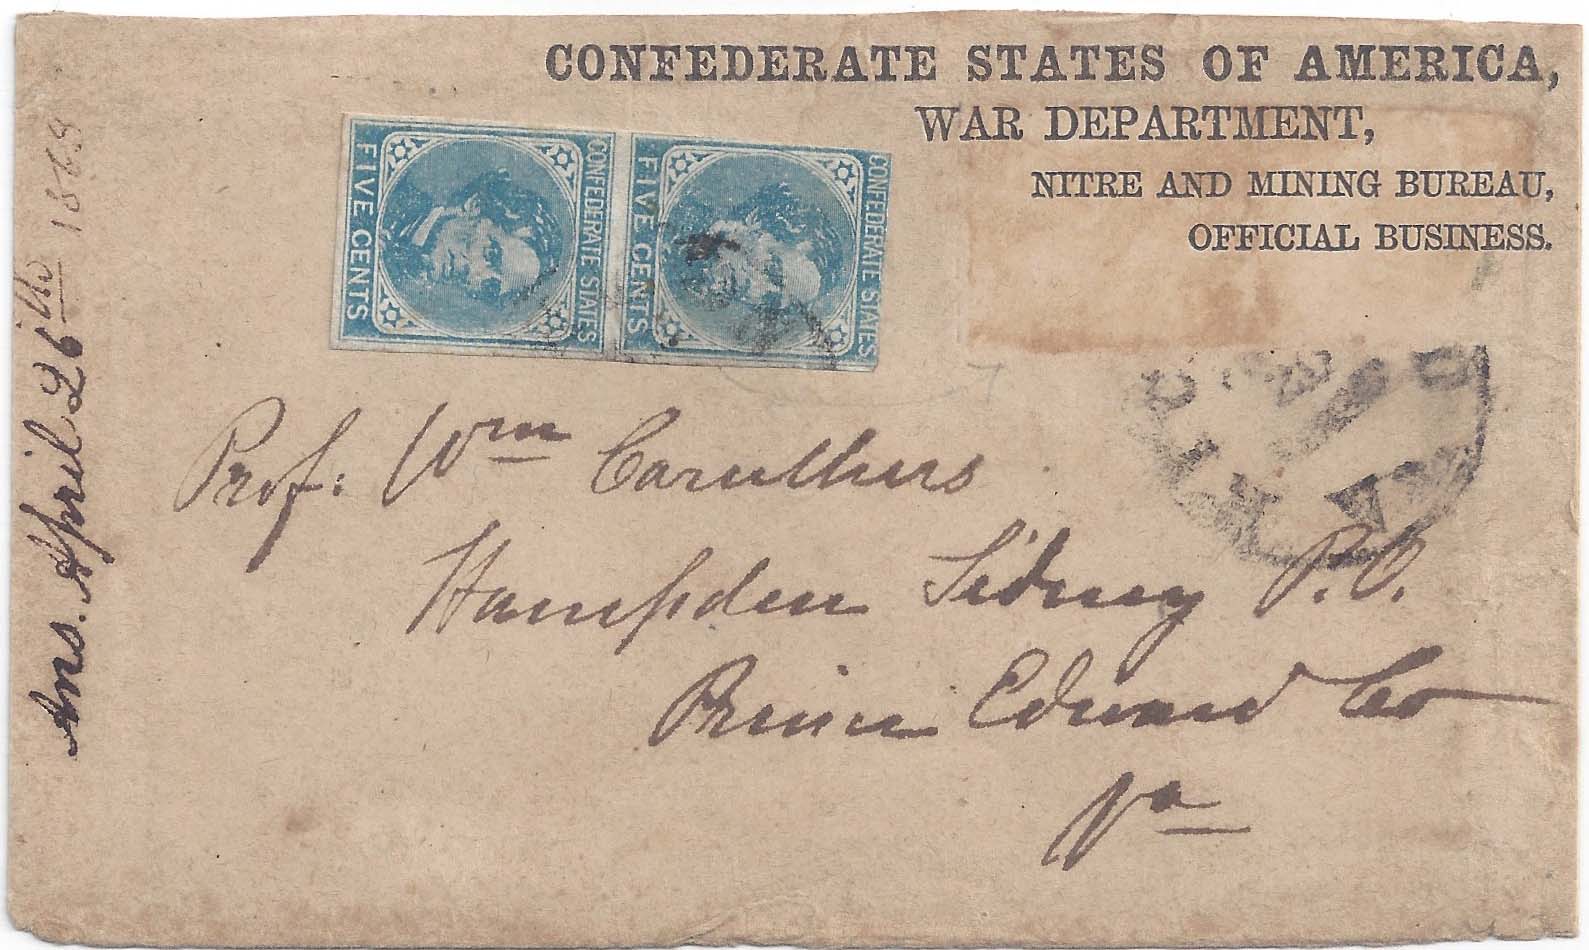 CONFEDERATE STATES OF AMERICA,
WAR DEPARTMENT,
NITRE AND MINING BUREAU,
OFFICIAL BUSINESS.
CONFEDERATE STATES
FIVE CENTS
CONFEDERATE STATES
FIVE CENTS
Prof: Wm Caruthers
Hampden Sidney P.O.
Prince Edward Co
Va
Ans. April 26th